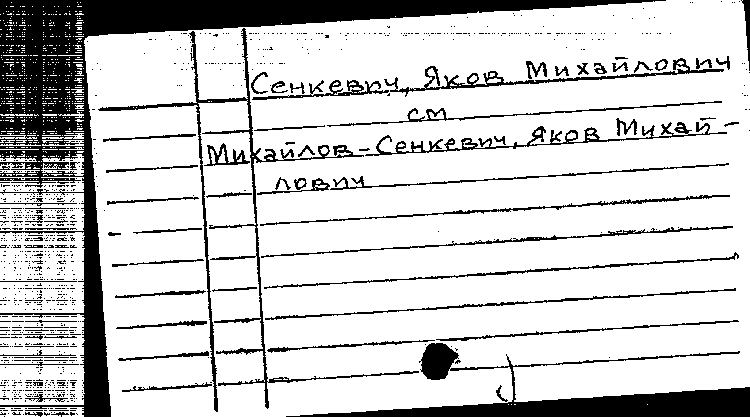 Сенкевич, Яков Михайлович
см
Михайлов-Сенкевич, Яков Михай-
лович